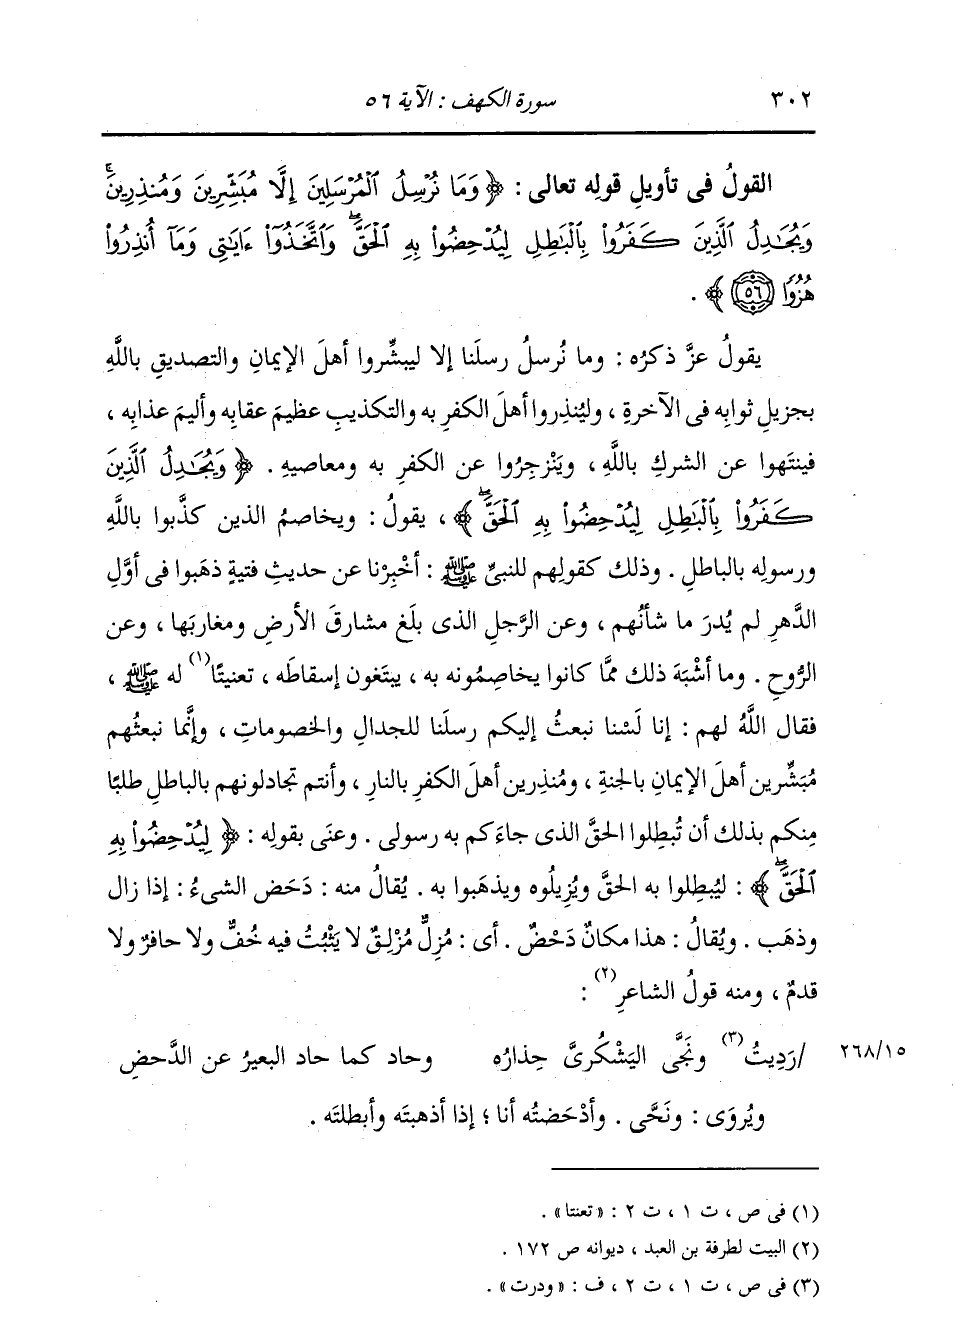 ٣٠٢ سورة الكهف : الآية ٥٦
القولُ فى تأويلِ قولِه تعالى : ﴿ وَمَا نُرْسِلُ الْمُرْسَلِينَ إِلَّا مُبَشِّرِينَ وَمُنذِرِينَۚ
وَيُجَٰدِلُ الَّذِينَ كَفَرُواْ بِالْبَٰطِلِ لِيُدْحِضُواْ بِهِ الْحَقَّۖ وَاتَّخَذُوٓاْ ءَايَٰتِى وَمَآ أُنذِرُواْ
هُزُوًا ٥٦ ﴾ .
يقولُ عزَّ ذكرُه : وما نُرسلُ رسلَنا إلا ليبشِّروا أهلَ الإيمانِ والتصديقِ باللَّهِ
بجزيلِ ثوابِه فى الآخرةِ ، وليُنذِروا أهلَ الكفرِ به والتكذيبِ عظيمَ عقابِه وأليمَ عذابِه ،
فينتَهوا عن الشركِ باللَّهِ ، ويَنْزجِرُوا عن الكفرِ به ومعاصيهِ . ﴿ وَيُجَٰدِلُ الَّذِينَ
كَفَرُواْ بِالْبَٰطِلِ لِيُدْحِضُواْ بِهِ الْحَقَّۖ ﴾ ، يقولُ : ويخاصمُ الذين كذَّبوا باللَّهِ
ورسولِه بالباطلِ . وذلك كقولِهم للنبىِّ ﷺ : أخْبِرْنا عن حديثِ فتيةٍ ذهَبوا فى أوَّلِ
الدَّهرِ لم يُدرَ ما شأنُهم ، وعن الرَّجلِ الذى بلَغ مشارقَ الأرضِ ومغاربَها ، وعن
الرُّوحِ . وما أشْبَهَ ذلك ممَّا كانوا يخاصِمُونه به ، يبتَغون إسقاطَه ، تعنيتًا(١) له ﷺ ،
فقال اللَّهُ لهم : إنا لَسْنا نبعثُ إليكم رسلَنا للجدالِ والخصوماتِ ، وإنَّما نبعثُهم
مُبَشِّرين أهلَ الإيمانِ بالجنةِ ، ومُنذِرين أهلَ الكفرِ بالنارِ ، وأنتم تجادلونهم بالباطلِ طلبًا
مِنكم بذلك أن تُبطِلوا الحقَّ الذى جاءَكم به رسولى . وعنَى بقولِه : ﴿ لِيُدْحِضُواْ بِهِ
الْحَقَّۖ ﴾ : ليُبطِلوا به الحقَّ ويُزِيلُوه ويذهَبوا به . يُقالُ منه : دَحَض الشىءُ : إذا زال
وذهَب . ويُقالُ : هذا مكانٌ دَحْضٌ . أى : مُزِلٌّ مُزْلِقٌ لا يَثْبُتُ فيه خُفٌّ ولا حافرٌ ولا
قدمٌ ، ومنه قولُ الشاعرِ(٢) :
/رَدِيتُ(٣) ونَجَّى اليَشْكُرىَّ حِذارُه وحاد كما حاد البعيرُ عن الدَّحضِ ٢٦٨/١٥
ويُروَى : ونَحَّى . وأدْحَضتُه أنا ؛ إذا أذهبتَه وأبطلتَه .
(١) فى ص ، ت ١ ، ت ٢ : « تعنتا » .
(٢) البيت لطرفة بن العبد ، ديوانه ص ١٧٢ .
(٣) فى ص ، ت ١ ، ت ٢ ، ف : « ودرت » .